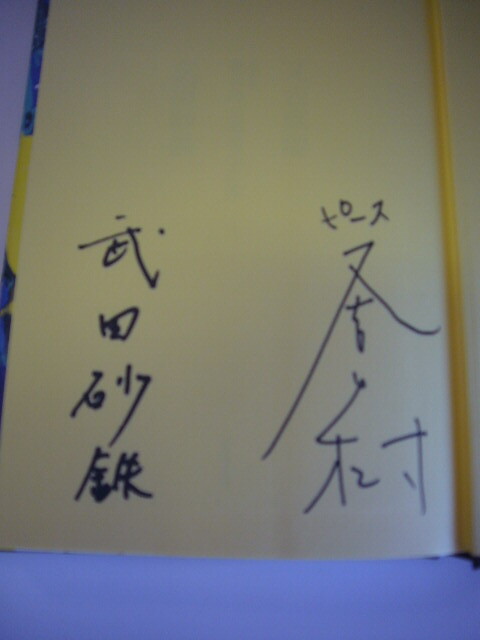 ピース
又吉直樹
武田砂鉄